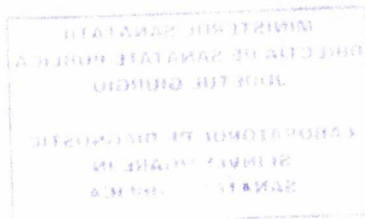 MINISTERUL SANATATII
DIRECTIA DE SANATATE PUBLICA
JUDETUL GIURGIU
LABORATORUL DE DIAGNOSTIC
SI IN
SANAT